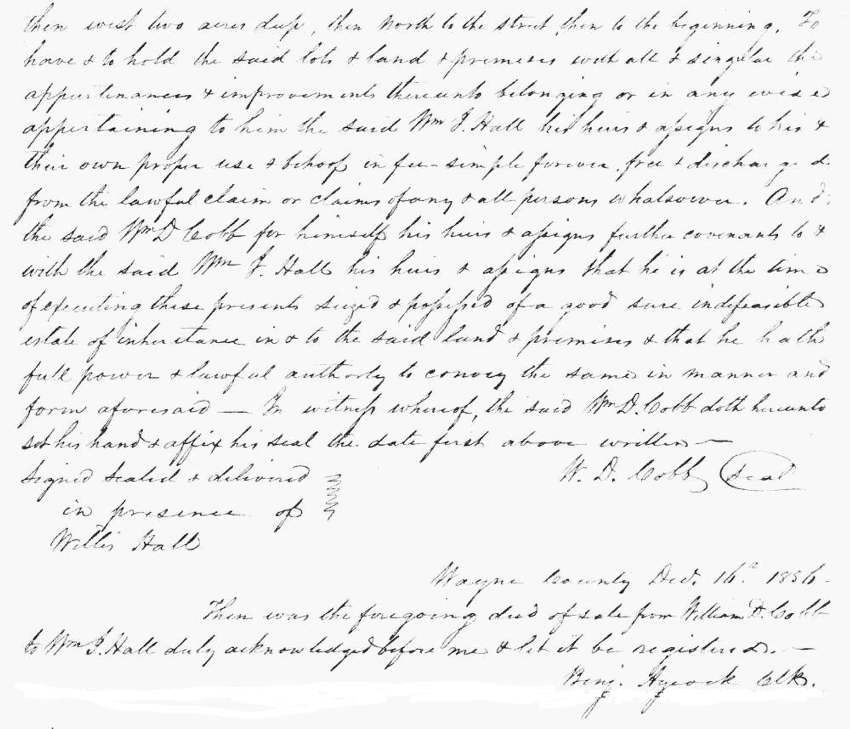 then west two acres deep, then North to the street, then to the beginning. To
have & to hold the said lots & land & premises with all & singular the
appurtinances & improvements thereunto belonging or in any wise
appertaining to him the said Wm J. Hall his heirs & assigns to his &
their own proper use & behoof in fee-simple forever free & discharged
from the lawful claim or claims of any & all persons whatsoever. And
the said Wm D Cobb for himself his heirs & assigns further covenants to &
with the said Wm J. Hall his heirs & assigns that he is at the time
of executing these presents seized & possessed of a good sure indefeasible
estate of inheritance in & to the said land & premises & that he hath
full power & lawful authority to convey the same in manner and
form aforesaid — In witness whereof, the said Wm D. Cobb doth hereunto
set his hand & affix his seal the date first above written —
Signed Sealed & delivered
W. D. Cobb Seal
in presence of
Willis Hall
Wayne County 16th 1856
Then was the foregoing deed of sale from William D. Cobb
to Wm J. Hall duly acknowledged before me & let it be registered. —
Benj. Aycock Clk.